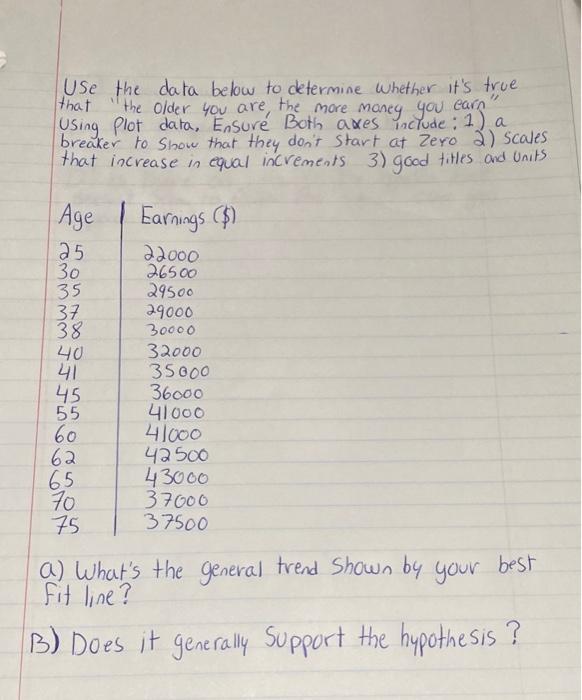 Use the data below to determine whether it's true
that "the older you are, the more money you earn"
Using Plot data, Ensure Both axes include: 1) a
breaker to show that they don't start at zero 2) Scales
that increase in equal increments 3) good titles and Units
Age | Earnings ($)
25 22000
30 26500
35 29500
37 29000
38 30000
40 32000
41 35000
45 36000
55 41000
60 41000
62 42500
65 43000
70 37000
75 37500
a) What's the general trend shown by your best
fit line?
B) Does it generally Support the hypothesis?